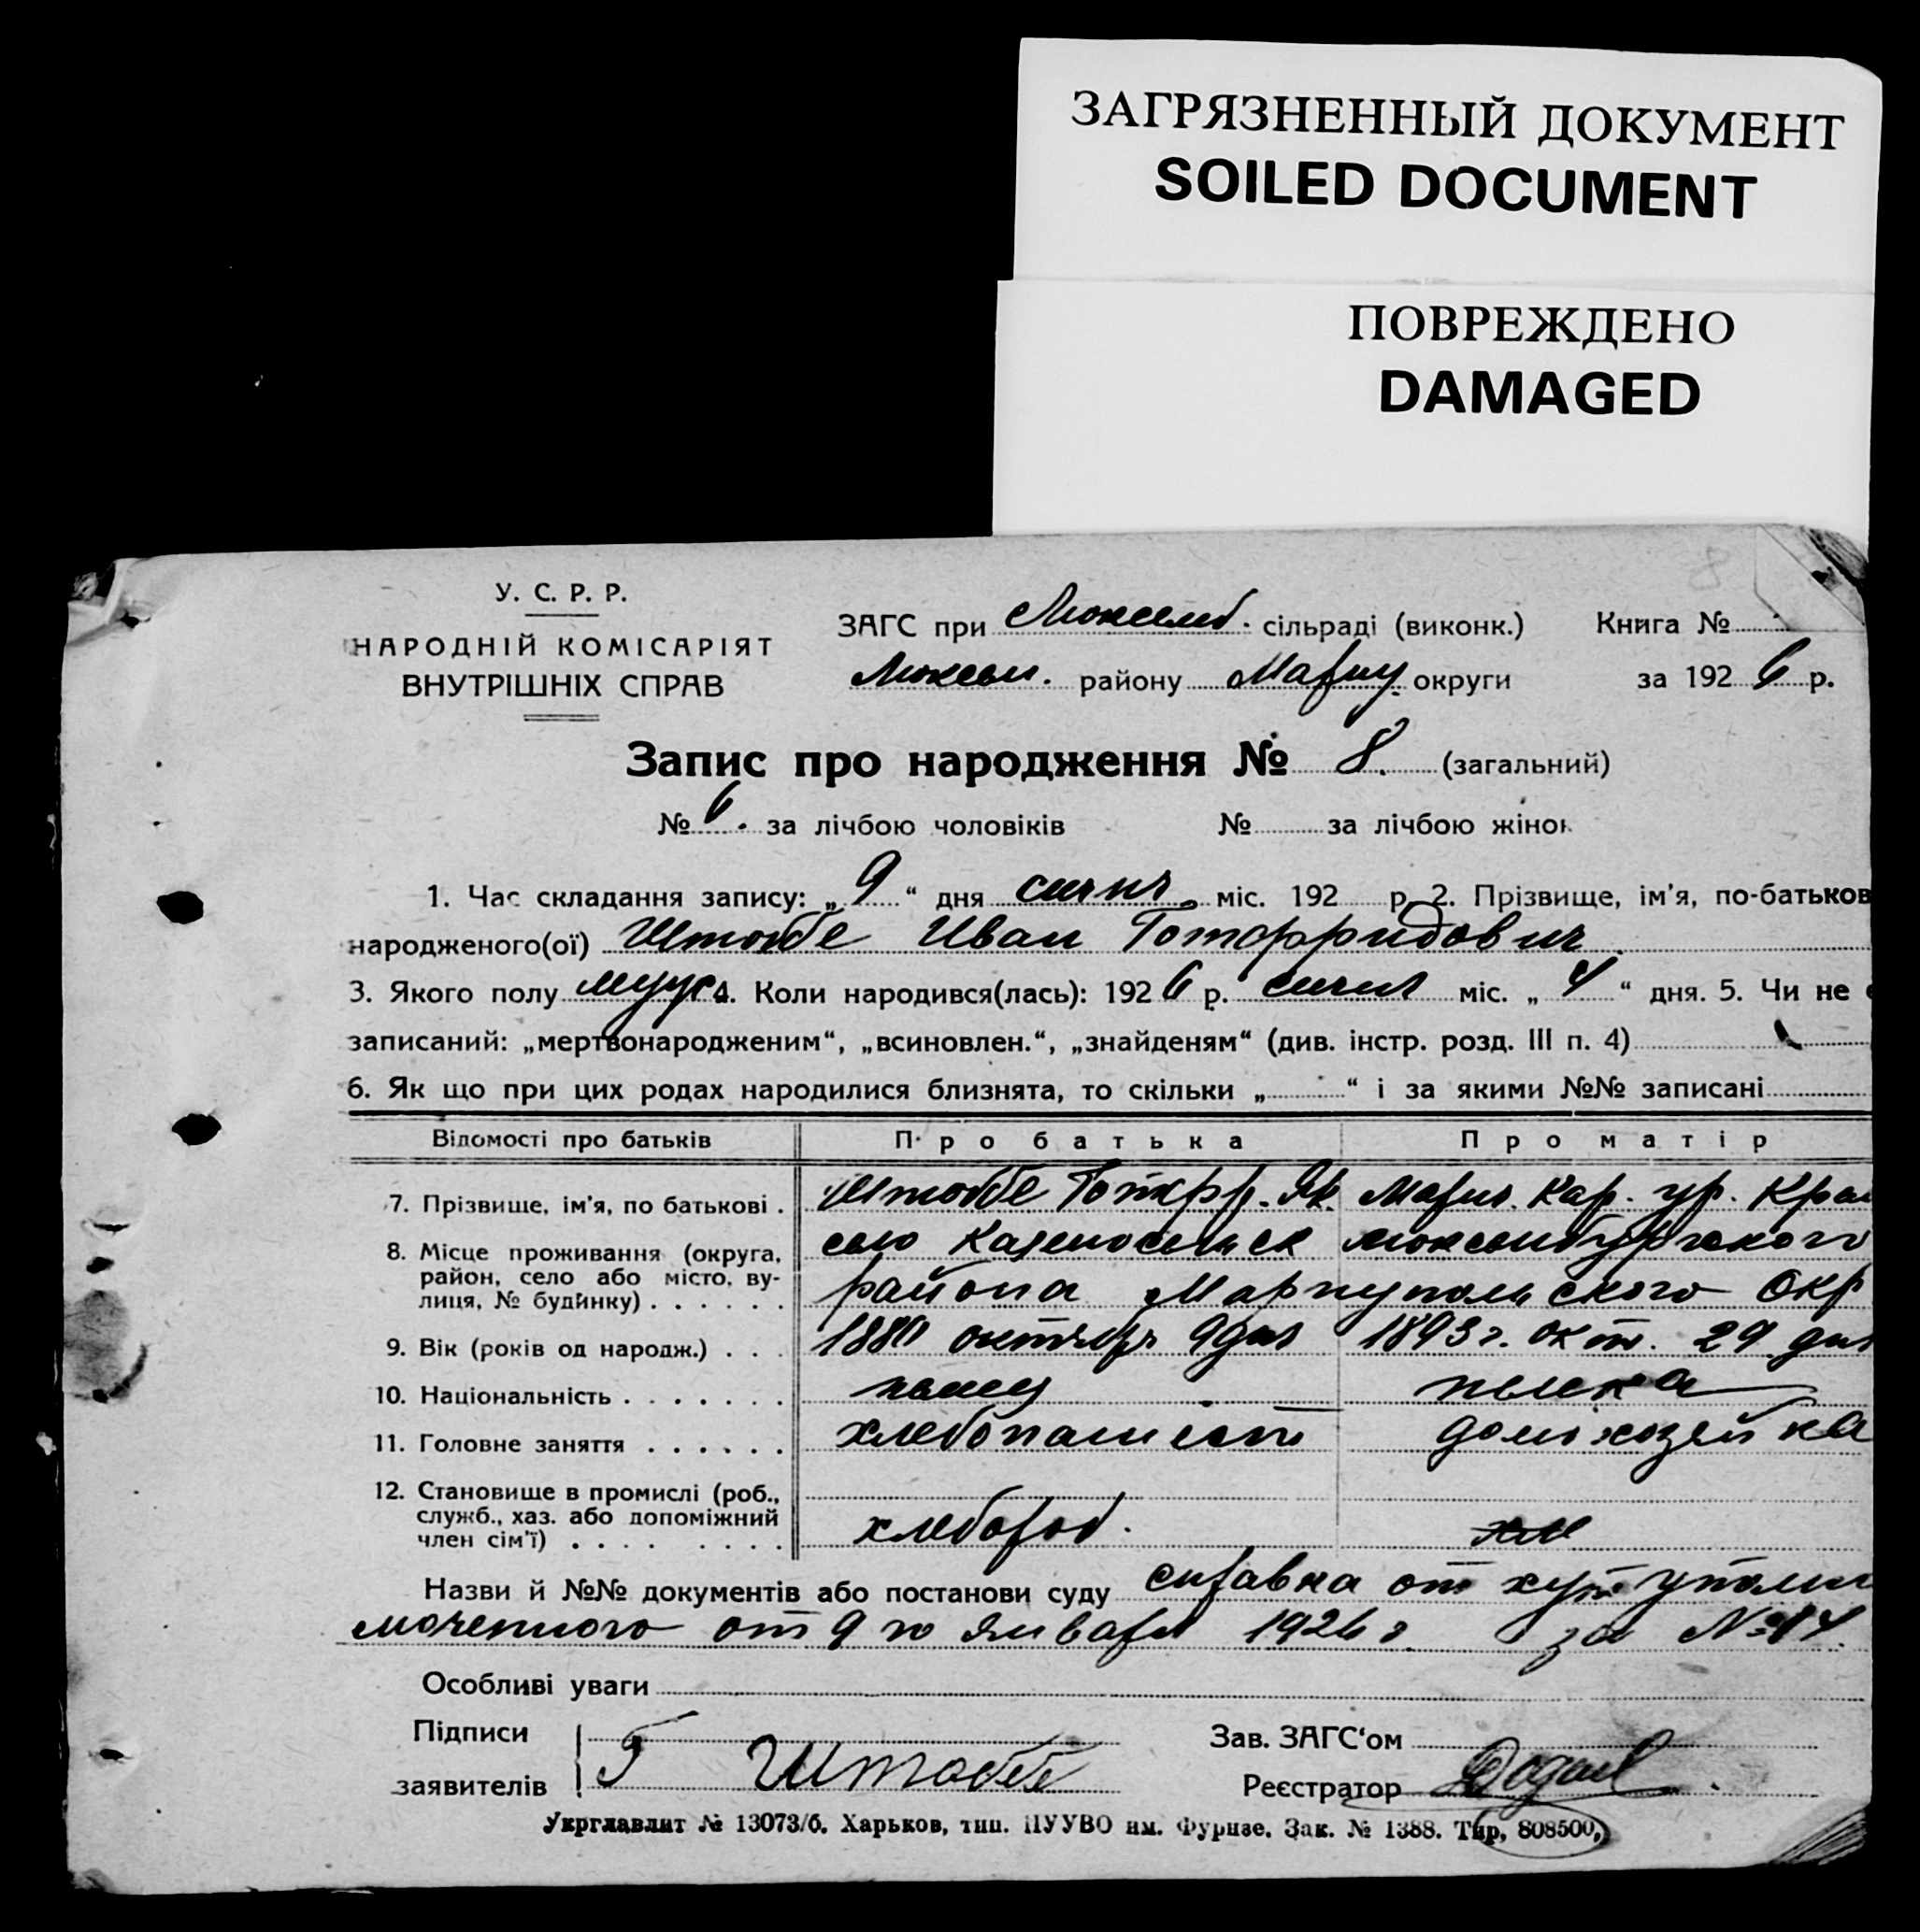 ЗАГРЯЗНЕННЫЙ ДОКУМЕНТ
SOILED DOCUMENT
ПОВРЕЖДЕНО
DAMAGED
8
У. С. Р. Р.
НАРОДНІЙ КОМІСАРІЯТ
ВНУТРІШНІХ СПРАВ
ЗАГС при Люксемб. сільраді (виконк.) Книга №
Люксем. району Маріуп. округи за 1926 р.
Запис про народження № 8. (загальний)
№ 6. за лічбою чоловіків № за лічбою жінок
1. Час складання запису: „9“ дня січня міс. 192 р. 2. Прізвище, ім'я, по-батьков
народженого(ої) Штоббе Иван Готфридович
3. Якого полу муж. 4. Коли народився(лась): 1926 р. січня міс. „4“ дня. 5. Чи не
записаний: „мертвонародженим“, „всиновлен.“, „знайденям“ (див. інстр. розд. III п. 4)
6. Як що при цих родах народилися близнята, то скільки „ “ і за якими №№ записані
Відомості про батьків Про батька Про матір
7. Прізвище, ім'я, по батькові . Штоббе Готфр. Як. Мария Кар. ур.
8. Місце проживання (округа, село люксембургского
район, село або місто, ву-
лиця, № будинку) . . . . . . района Мариупольского Окр
9. Вік (років од народж.) . . . 1880 октября 9 дня 1893 г. окт. 29 дня
10. Національність . . . . . . . немец немка
11. Головне заняття . . . . . . хлебопашест домохозяйка
12. Становище в промислі (роб.,
служб., хаз. або допоміжний
член сім'ї) . . . . . . . . хлебороб.
Назви й №№ документів або постанови суду справка от хут уполно
моченного от 9 го января 1926 г. за № 14.
Особливі уваги
Підписи
заявителів Г Штоббе
Зав. ЗАГС'ом
Реєстратор
Укрглавлит № 13073/б. Харьков, тип. ПУУВО им. Фрунзе. Зак. № 1388. Тир. 808500,